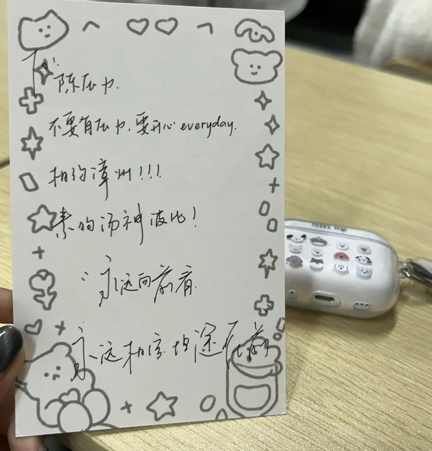 陈压力.
不要有压力, 要开心 everyday.
相约漳州!!!
的汤神波比!
永远向前看.
永远相信坦途在前